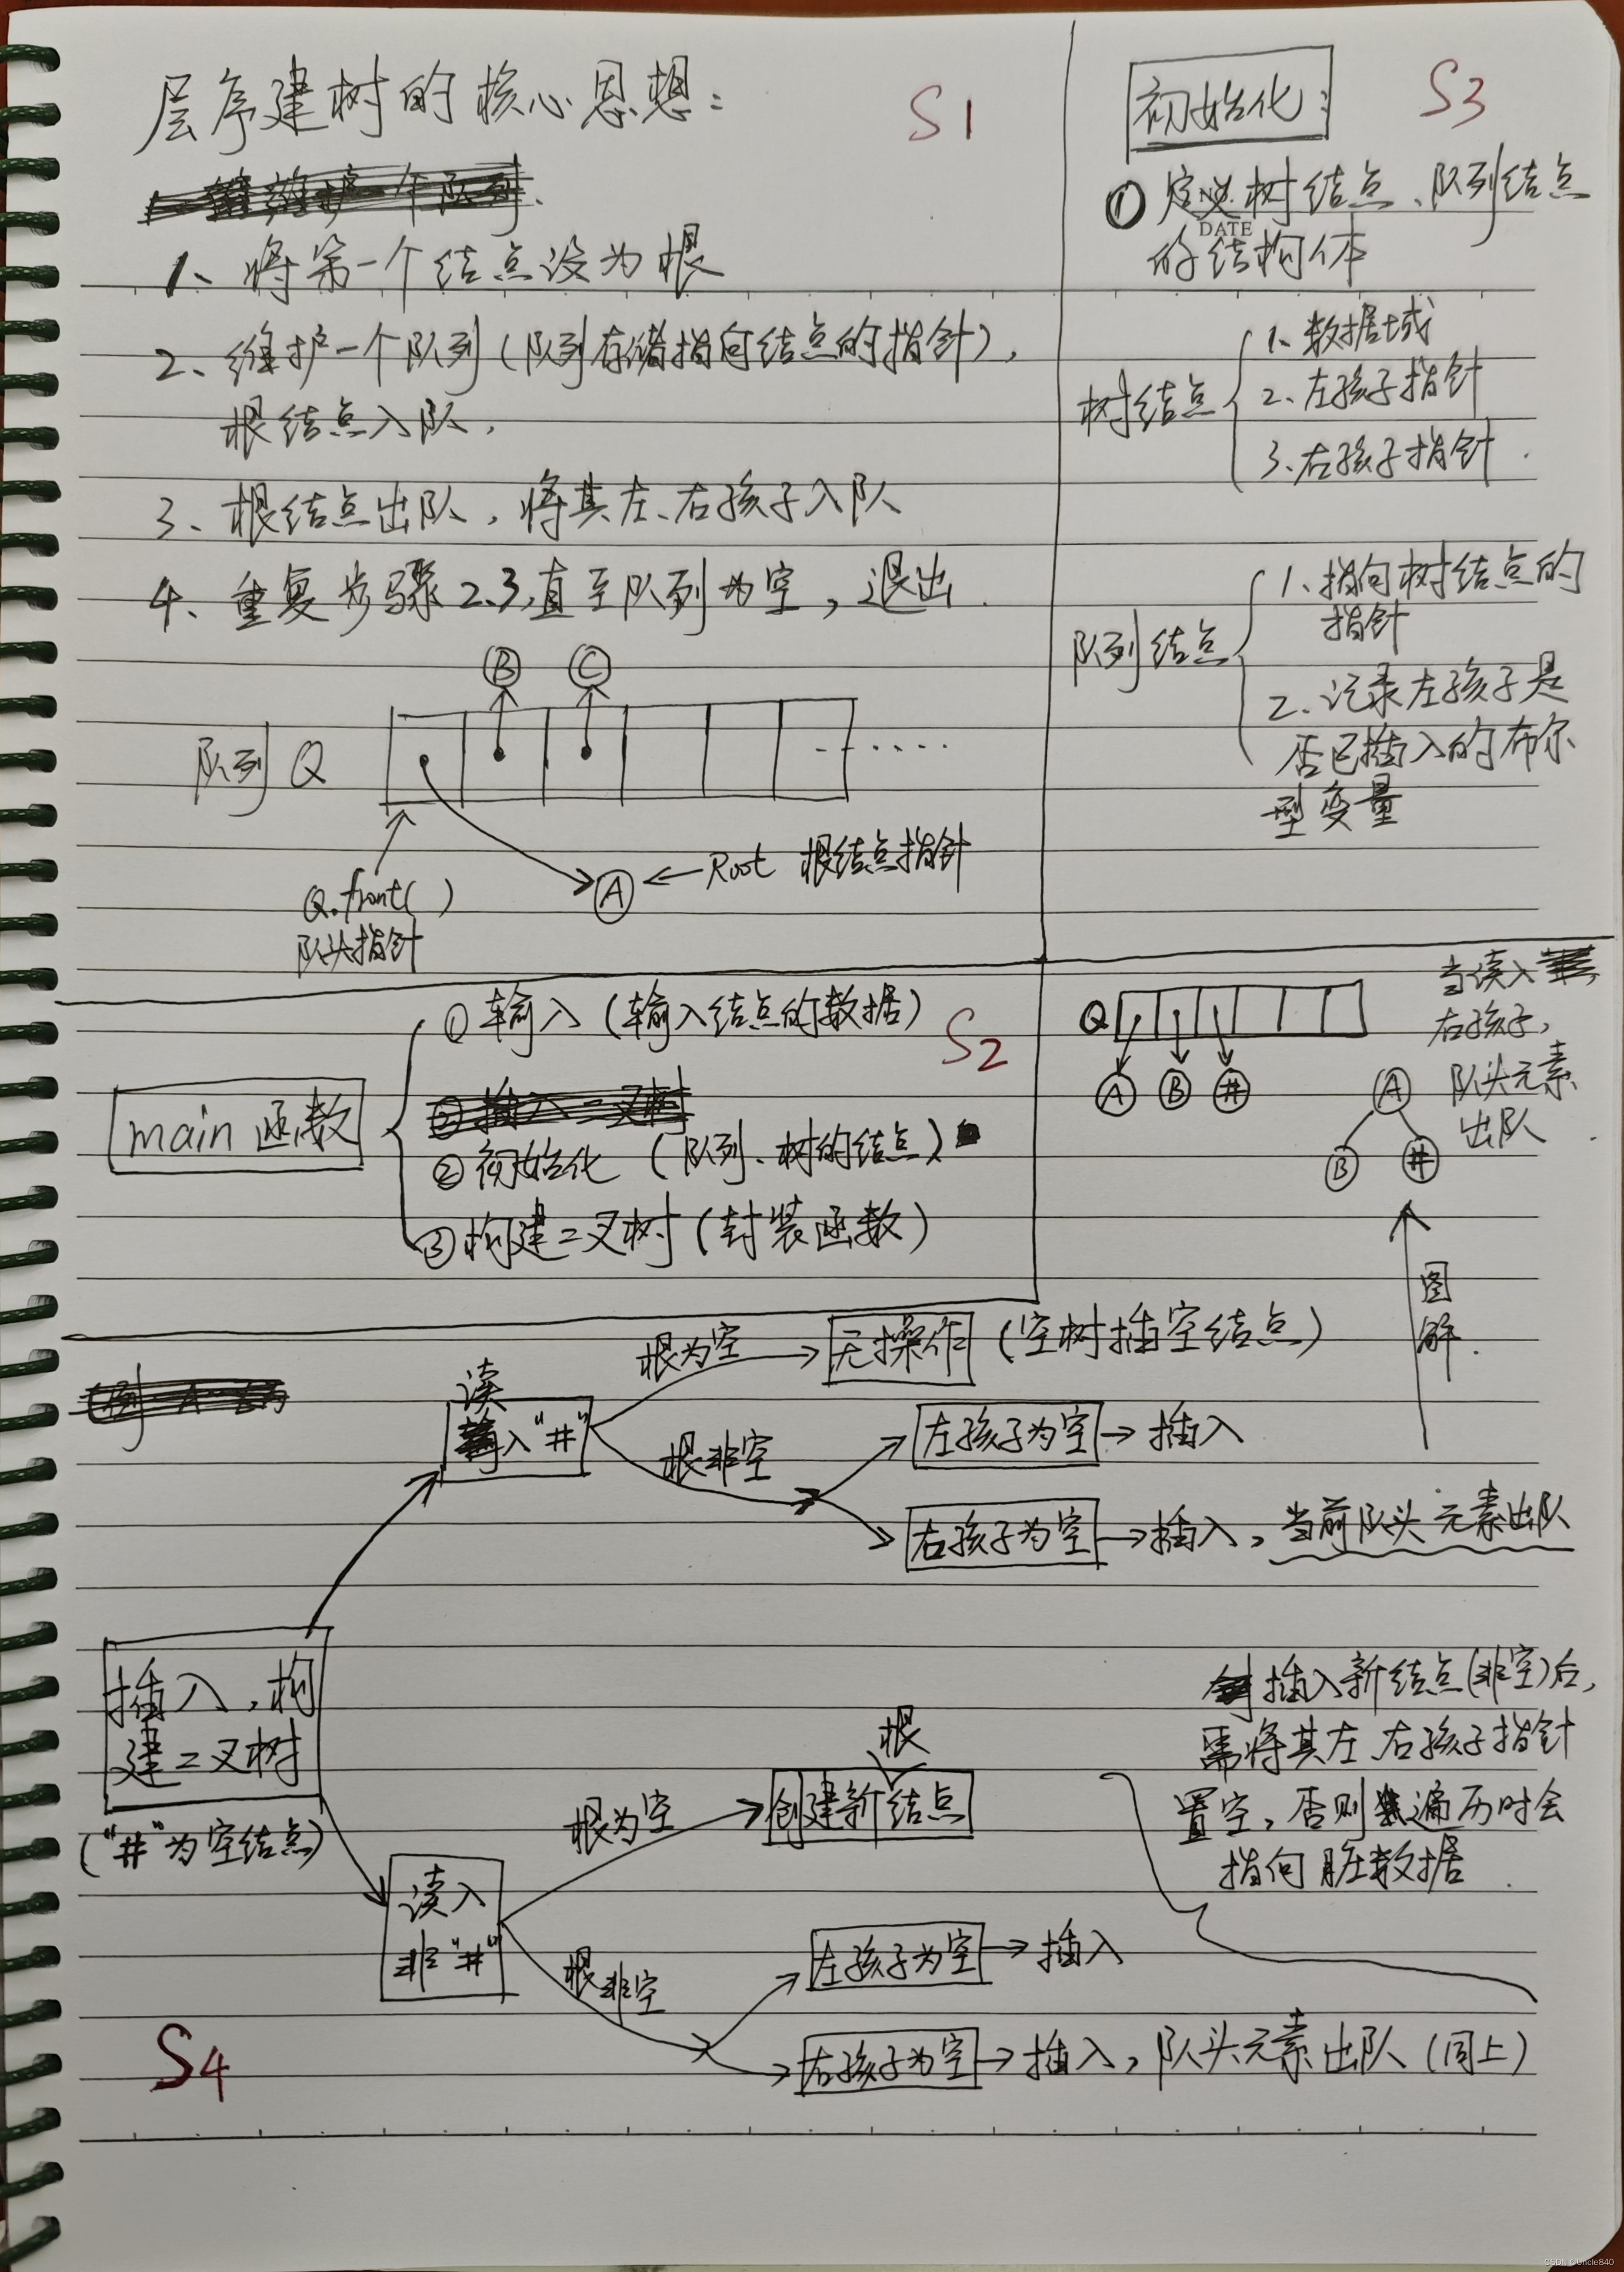 层序建树的核心思想：
S1
1、将第一个结点设为根
2、维护一个队列（队列存储指向结点的指针），
根结点入队，
3、根结点出队，将其左、右孩子入队
4、重复步骤2、3，直至队列为空，退出．
B C
队列 Q
A ← Root 根结点指针
Q.front( )
队头指针
初始化：
S3
① 定义树结点、队列结点
DATE
的结构体
树结点
1、数据域
2、左孩子指针
3、右孩子指针．
队列结点
1、指向树结点的
指针
2、记录左孩子是
否已插入的布尔
型变量
S2
main 函数
① 输入（输入结点的数据）
② 初始化（队列、树的结点）
③ 构建二叉树（封装函数）
Q
A B #
当读入
右孩子，
队头元素
出队．
A
B #
图
解．
插入，构
建二叉树
（“#”为空结点）
读
入“#”
根为空
无操作（空树插空结点）
根非空
左孩子为空→插入
右孩子为空→插入，当前队头元素出队
读入
非“#”
根为空
根
创建新结点
根非空
左孩子为空→插入
右孩子为空→插入，队头元素出队（同上）
插入新结点(非空)后，
需将其左、右孩子指针
置空，否则遍历时会
指向脏数据．
S4
CSDN @Uncle840